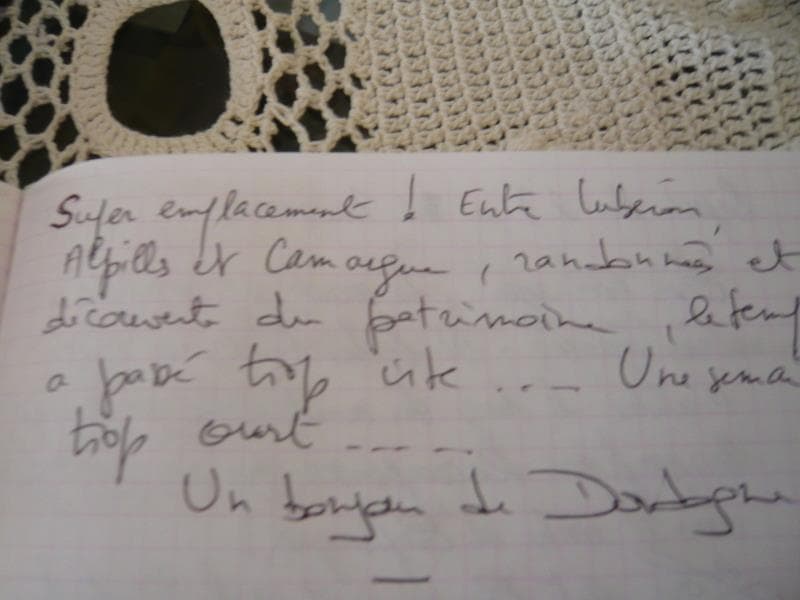 Super emplacement ! Entre Lubéron,
Alpills et Camargue, randonnés et
découverte du patrimoine, le temp
a passé trop vite ....
Une sema
trop court ....
Un bonjour de Dordogne